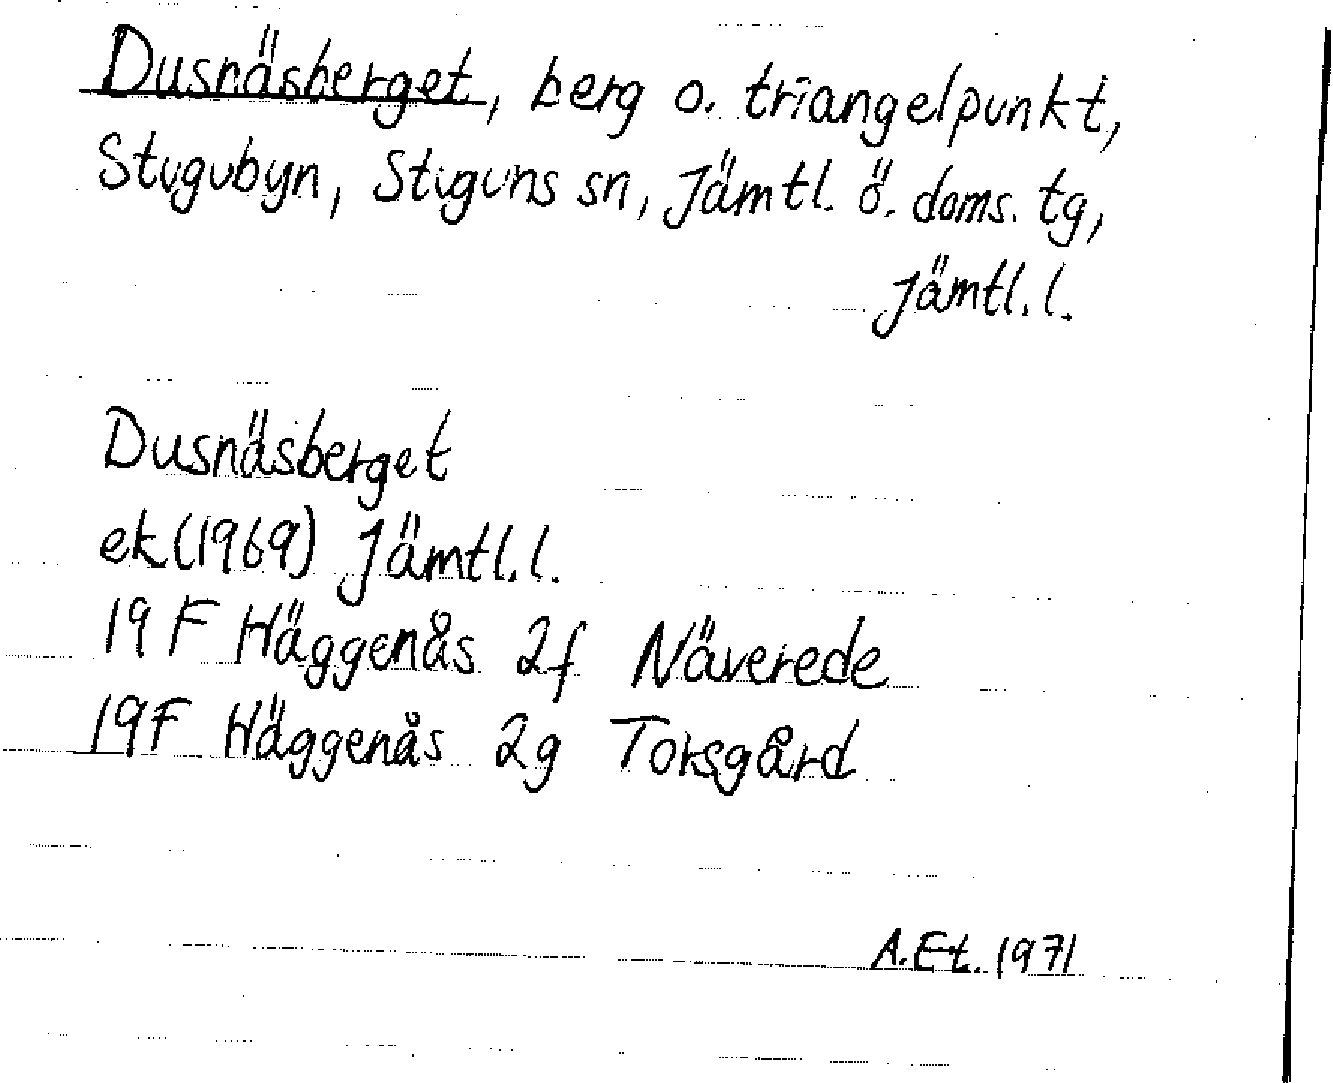 Dusnäsberget, berg o. triangelpunkt,
Stugubyn, Stuguns sn, Jämtl. ö. doms. tg,
Jämtl. l.
Dusnäsberget
ek (1969) Jämtl. l.
19 F Häggenås 2f Näverede
19F Häggenås 2g Torsgård
A.Et. 1971